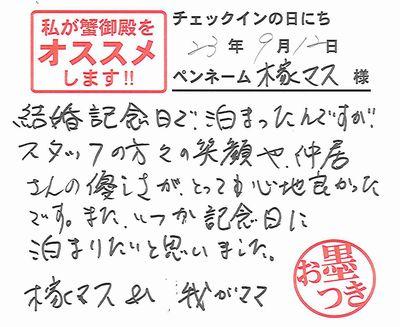 私が蟹御殿を
オススメ
します!!
チェックインの日にち
23年9月12日
ペンネーム 様マス 様
結婚記念日で、泊まったんですが、
スタッフの方々の笑顔や、仲居
さんの優しさが、とっても心地良かった
です。また、いつか記念日に
泊まりたいと思いました。
マス & 我がママ
お墨つき